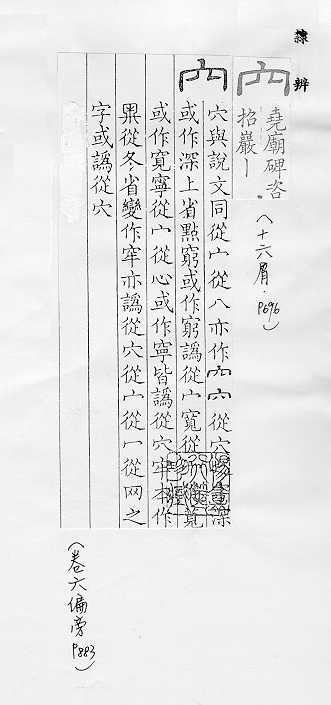 隸辨
堯廟碑咨
招巖丨
（十六屑．P696）
穴與說文同從宀從八亦作
從穴
或作深上省點窮或作窮譌從宀寬從
或作寛寧從宀從心或作寧皆譌從穴牢本作
從冬省變作牢亦譌從穴從宀從冖從网之
字或譌從穴
（卷六偏旁P883）